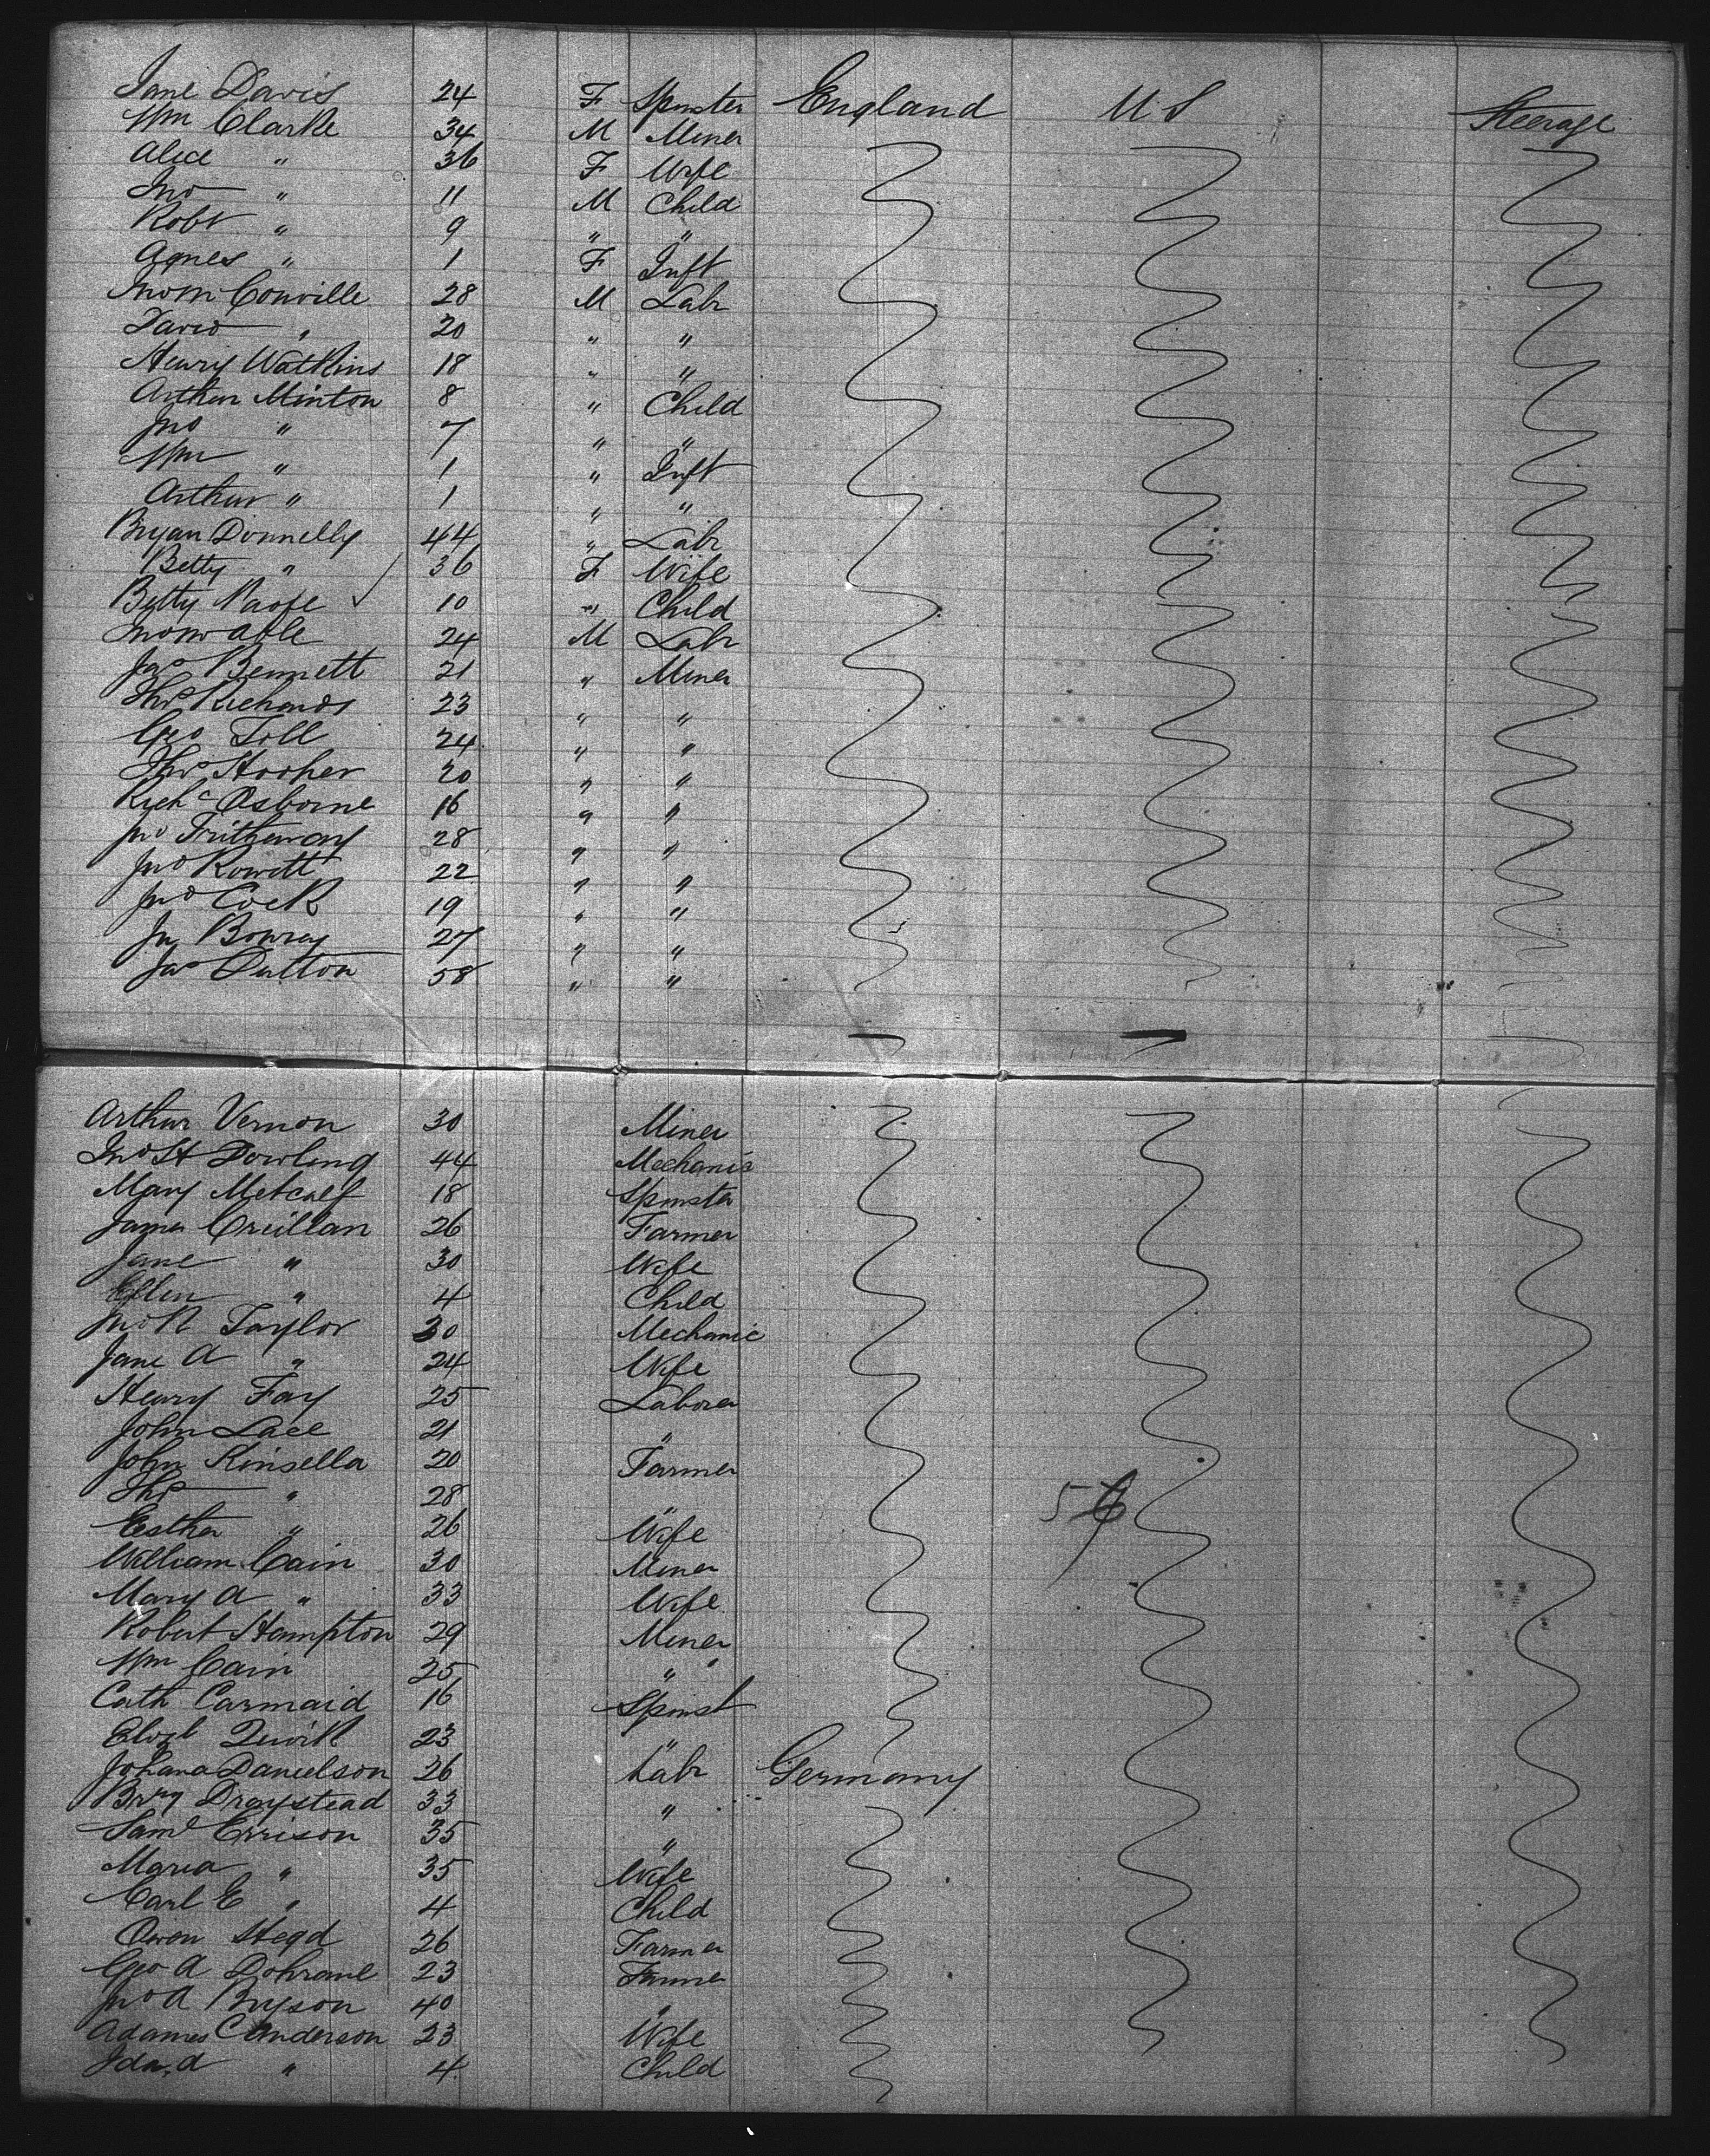 Jane Davis 24 F Spinster England U S Steerage
Wm Clarke 34 M Miner
Alice " 36 F Wife
Jno " 11 M Child
Robt " 9 " "
Agnes " 1 F Inft
Jno Conville 28 M Labr
David " 20 " "
Henry Watkins 18 " "
Arthur Minton 8 " Child
Jno " 7 " "
Wm " 1 " Inft
Arthur " 1 " "
Bryan Donnelly 44 " Labr
Betty " 36 F Wife
Betty 10 " Child
24 M Labr
Jas Bennett 21 " Miner
Thos Richards 23 " "
Geo Toll 24 " "
Thos Hooper 20 " "
Richd Osborne 16 " "
Jno Tritheway 28 " "
Jno Rowett 22 " "
Jno Cock 19 " "
Jn Bowrey 27 " "
Jas Dutton 58 " "
Arthur Vernon 30 Miner
Jno H Dowling 44 Mechanic
Mary Metcalf 18 Spinster
James Creillan 26 Farmer
Jane " 30 Wife
Ellen " 4 Child
Jno R Taylor 30 Mechanic
Jane A " 24 Wife
Henry Fay 25 Laborer
John Lace 21 "
John Kinsella 20 Farmer
Thos " 28 "
Esther " 26 Wife
William Cain 30 Miner
Mary A " 33 Wife
Robert Hampton 29 Miner
Wm Cain 25 "
Cath Carmaid 16 Spinst
Elizb 23 "
Johana Danielson 26 Labr Germany
Draystead 33 "
Saml Errison 35 "
Maria " 35 Wife
Carl E " 4 Child
Owen Stegd 26 Farmer
Geo A Dohrane 23 Farmer
Jno A Bryson 40 "
Adames C Anderson 23 Wife
Ida A " 4 Child